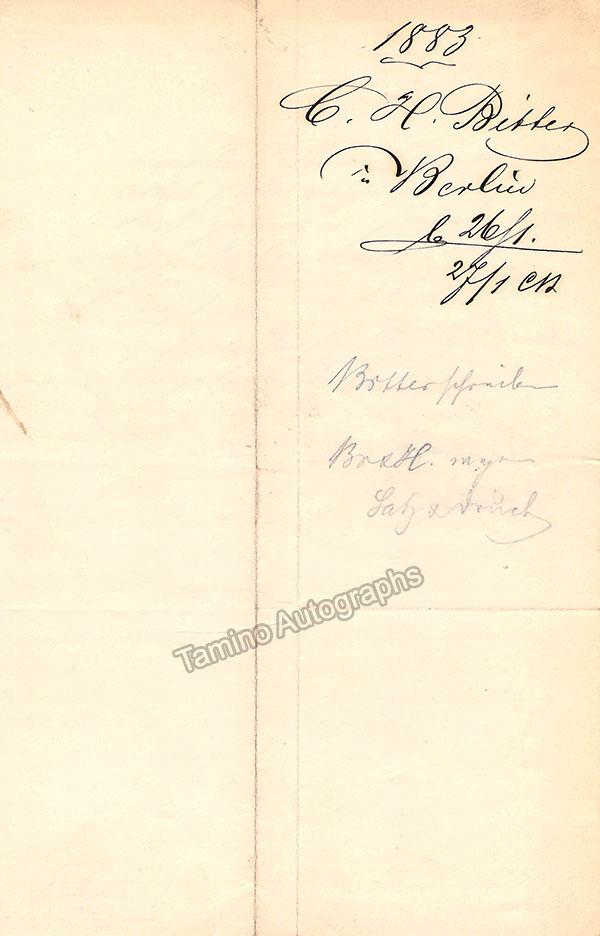 1883
C. H. Bitter
in Berlin
b 26/1.
27/1 CB
Bitter schreiben
B&H. wegen
Satz & Druck
Tamino Autographs